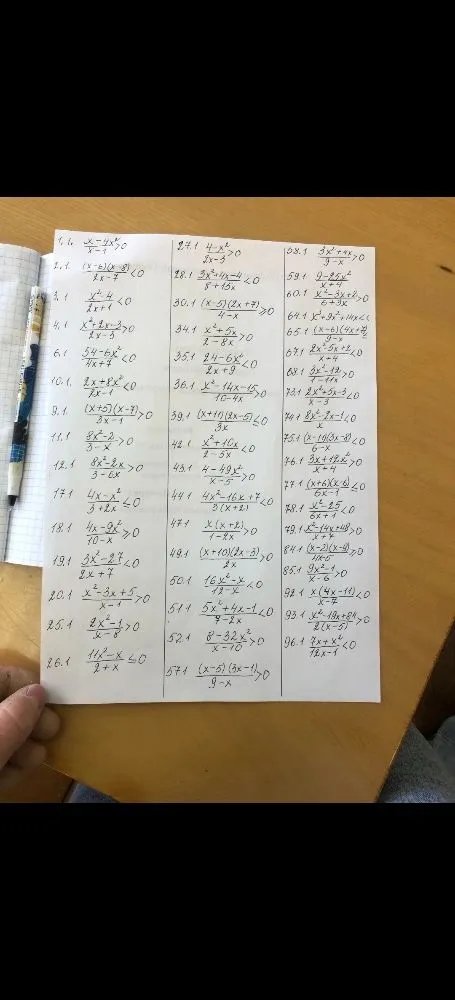 1.1. (x-4x²)/(x-1)>0
2.1. ((x-6)(x-8))/(2x-7)<0
3.1 (x²-4)/(2x+1)<0
4.1 (x²+2x-3)/(2x-3)>0
6.1 (54-6x²)/(4x+7)<0
10.1. (2x+8x²)/(2x-1)<0
9.1. ((x+5)(x-7))/(3x-1)>0
11.1 (8x²-2)/(3-x)>0
12.1 (8x²-2x)/(3-6x)>0
17.1 (4x-x²)/(3+2x)≤0
18.1 (4x-9x²)/(10-x)>0
19.1 (3x²-27)/(2x+7)<0
20.1 (x²-3x+5)/(x-1)>0
25.1 (2x²-1)/(x-8)>0
26.1 (11x²-x)/(2+x)≤0
27.1 (4-x²)/(2x-3)>0
28.1 (3x²+4x-4)/(8+15x)<0
30.1 ((x-5)(2x+7))/(4-x)≥0
34.1 (x²+5x)/(2-8x)>0
35.1 (24-6x²)/(2x+9)<0
36.1 (x²-14x-15)/(10-4x)>0
39.1 ((x+11)(2x-5))/(3x)≤0
42.1 (x²+10x)/(2-5x)<0
43.1 (4-49x²)/(x-5)>0
44.1 (4x²-16x+7)/(3(x+2))<0
47.1 (x(x+2))/(1-2x)>0
49.1 ((x+10)(2x-3))/(2x)>0
50.1 (16x²-x)/(12-x)<0
51.1 (5x²+4x-1)/(7-2x)<0
52.1 (8-32x²)/(x-10)>0
57.1 ((x-5)(3x-1))/(9-x)>0
58.1 (3x²+4x)/(9-x)>0
59.1 (9-25x²)/(x+4)
60.1 (x²-3x+2)/(6+3x)>0
64.1 x³+9x²+14x<
65.1 ((x-6)(4x+7))/(9-x)
67.1 (2x²-5x+2)/(x+4)<0
68.1 (3x²-12)/(1-11x)>0
73.1 (2x²+5x-3)/(x-3)<0
74.1 (8x²-2x-1)/x<0
75.1 ((x-11)(3x-8))/(6-x)<0
76.1 (3x+12x²)/(x+4)>0
77.1 ((x+6)(x-6))/(6x-1)<0
78.1 (x²-25)/(6x+1)<0
79.1 (x²-14x+48)/(x+7)>0
84.1 ((x-2)(x-4))/(4x-5)>0
85.1 (9x²-1)/(x-6)>0
92.1 (x(4x-11))/(x-7)<0
93.1 (x²-19x+84)/(2(x-5))>0
96.1 (7x+x²)/(12x-1)<0